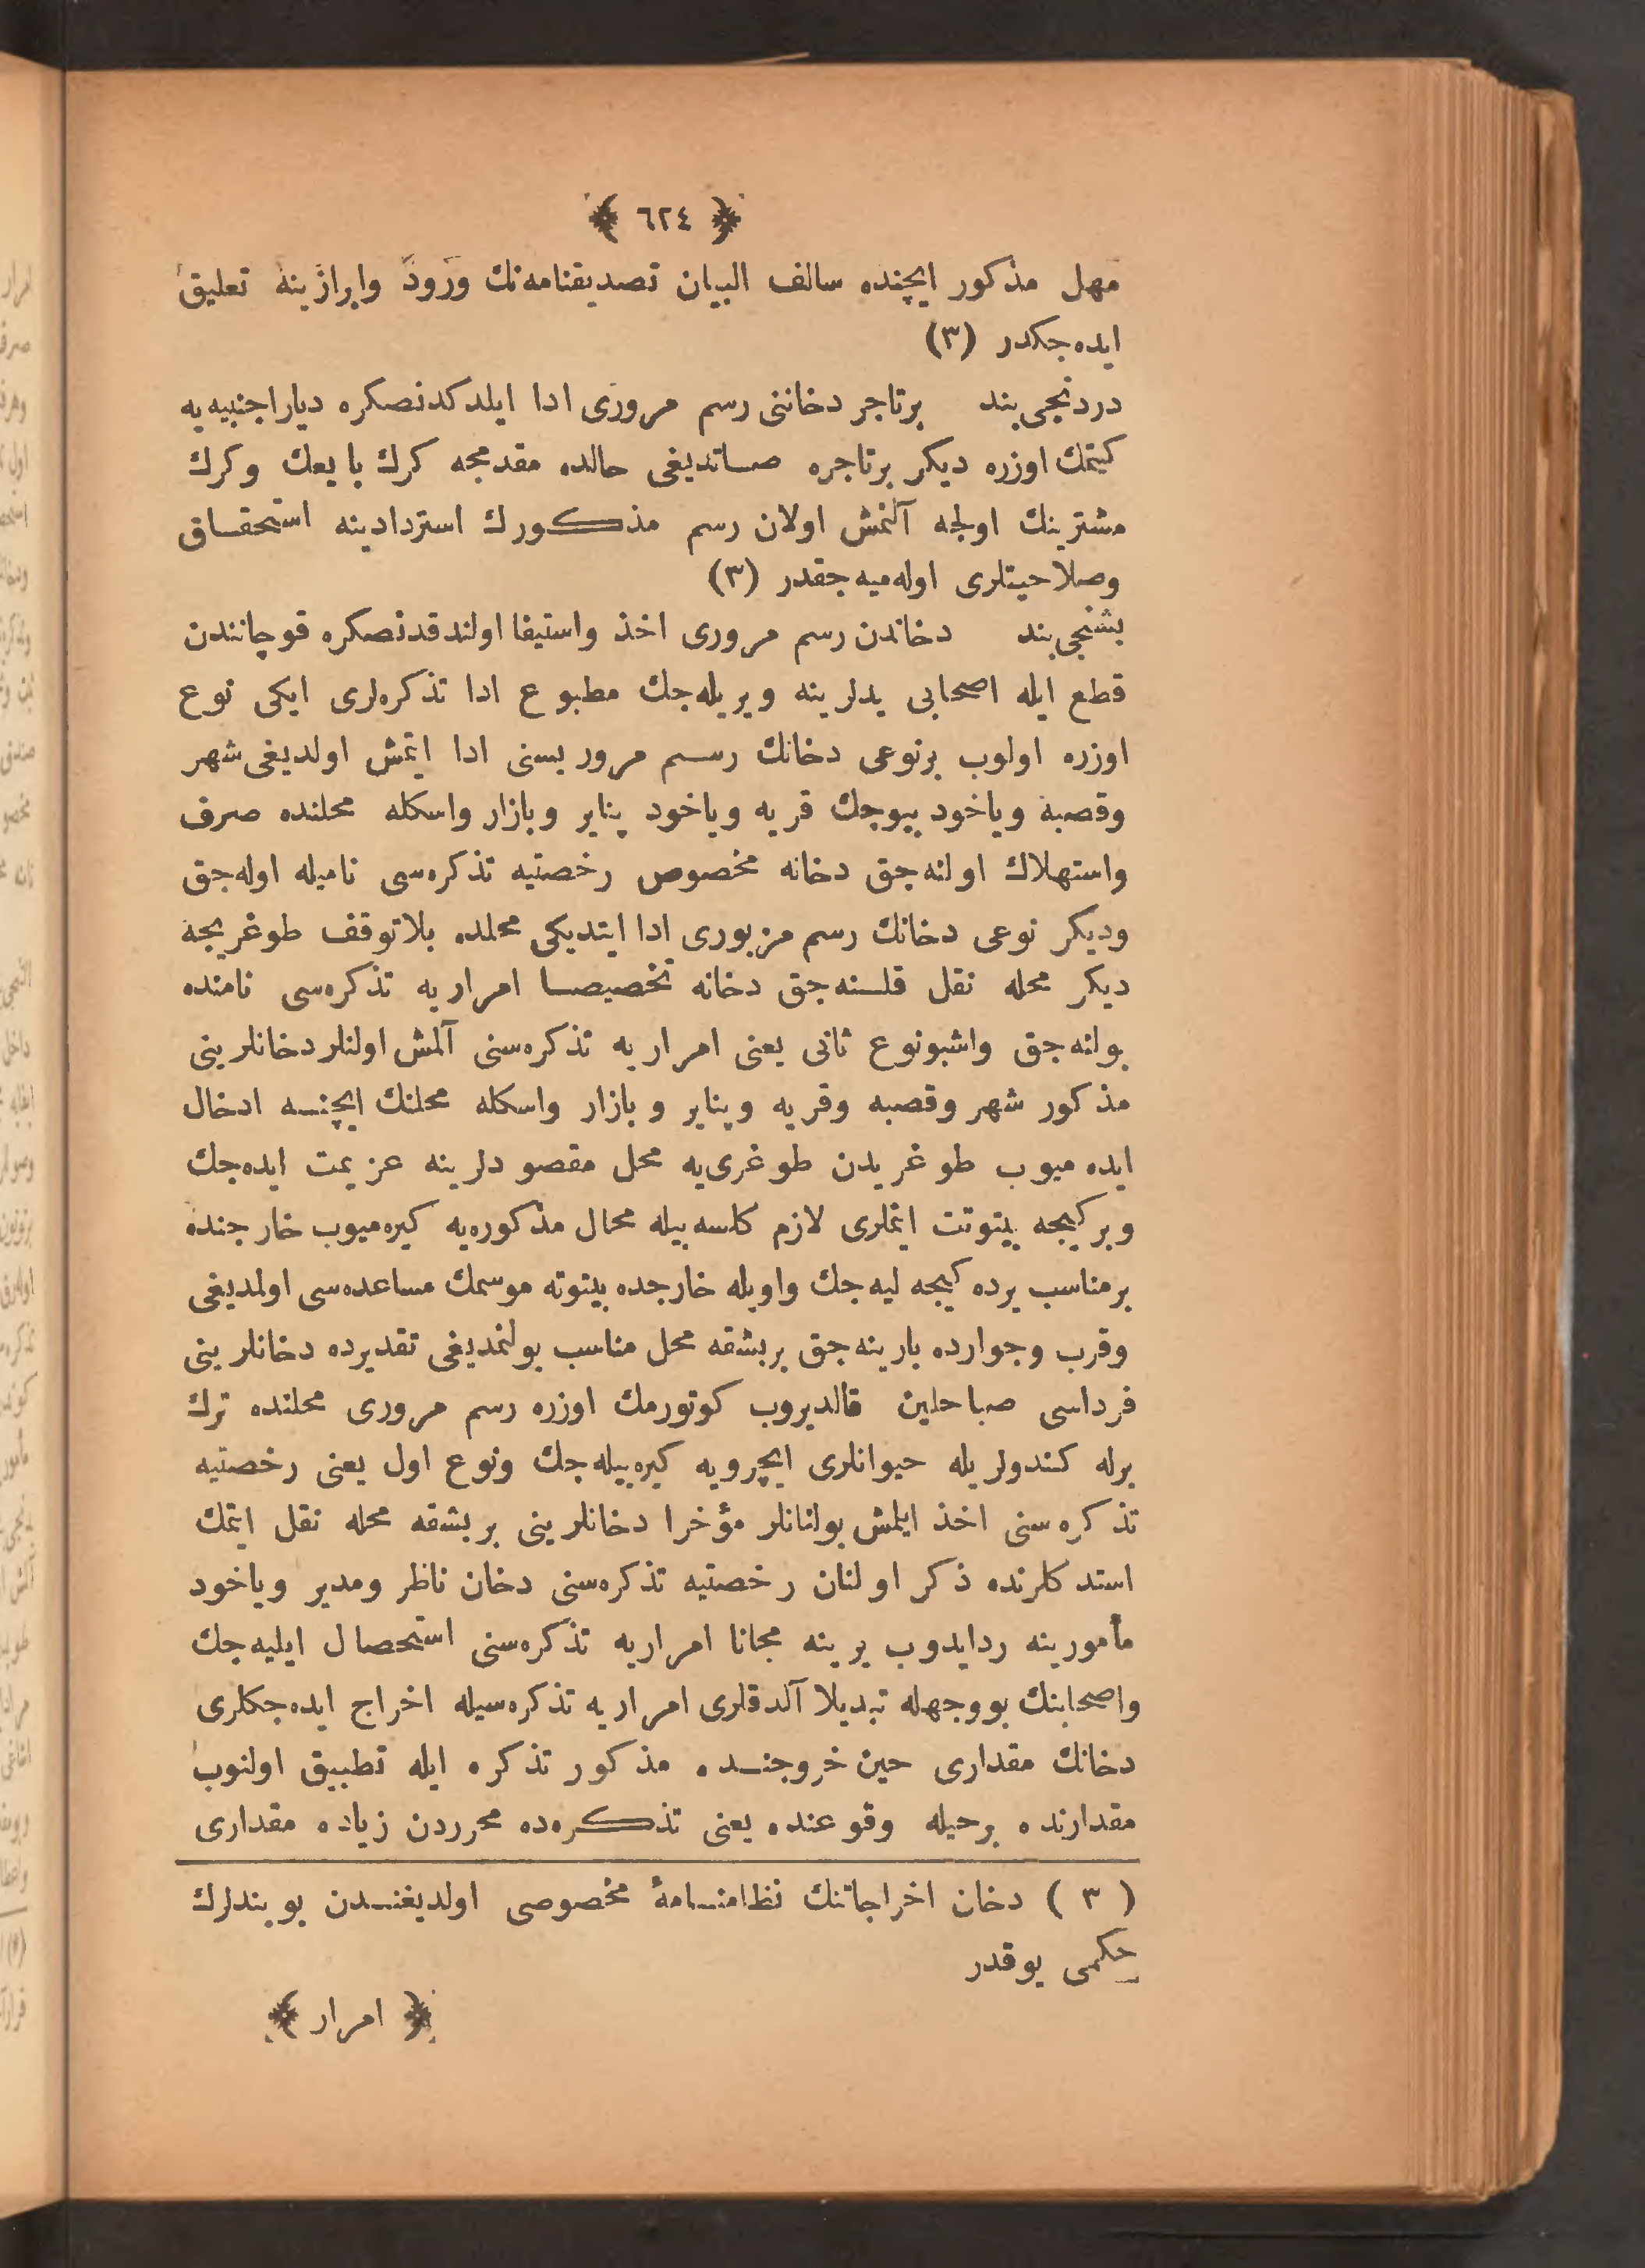 ﴿ ٦٢٤ ﴾
مهل مذكور ايچنده سالف البيان تصديقنامه‌نك ورود وابرازينه تعليق
ايده‌جكدر (٣)
دردنجى بند برتاجر دخاننى رسم مرورى ادا ايلدكدنصكره ديار اجنبيه‌يه
كيتمك اوزره ديكر برتاجره صاتديغى حالده مقدمجه كرك بايعك وكرك
مشترينك اولجه آلنمش اولان رسم مذكورك استردادينه استحقاق
وصلاحيتلرى اوله‌ميه‌جقدر (٣)
بشنجى بند دخاندن رسم مرورى اخذ واستيفا اولندقدنصكره قوچانندن
قطع ايله اصحابى يدلرينه ويريله‌جك مطبوع ادا تذكره‌لرى ايكى نوع
اوزره اولوب برنوعى دخانك رسم مروريسنى ادا ايتمش اولديغى شهر
وقصبه وياخود بيوجك قريه وياخود پناير وبازار واسكله محلنده صرف
واستهلاك اولنه‌جق دخانه مخصوص رخصتيه تذكره‌سى ناميله اوله‌جق
وديكر نوعى دخانك رسم مزبورى ادا ايتديكى محلده بلاتوقف طوغريجه
ديكر محله نقل قلنه‌جق دخانه تخصيصا امراريه تذكره‌سى نامنده
بولنه‌جق واشبونوع ثانى يعنى امراريه تذكره‌سنى آلمش اولنلر دخانلرينى
مذكور شهر وقصبه وقريه وپناير وبازار واسكله محلنك ايچنه ادخال
ايده‌ميوب طوغريدن طوغرى‌يه محل مقصودلرينه عزيمت ايده‌جك
وبركيجه بيتوتت ايتملرى لازم كلسه بيله محال مذكوره‌يه كيره‌ميوب خارجنده
برمناسب يرده كيجه‌ليه‌جك واويله خارجده بيتوته موسمك مساعده‌سى اولمديغى
وقرب وجوارده بارينه‌جق بربشقه محل مناسب بولنمديغى تقديرده دخانلرينى
فرداسى صباحلين قالديروب كوتورمك اوزره رسم مرورى محلنده ترك
برله كندولريله حيوانلرى ايچرويه كيره‌بيله‌جك ونوع اول يعنى رخصتيه
تذكره‌سنى اخذ ايلمش بولنانلر مؤخرا دخانلرينى بربشقه محله نقل ايتمك
استدكلرنده ذكر اولنان رخصتيه تذكره‌سنى دخان ناظر ومدير وياخود
مأمورينه ردايدوب يرينه مجانا امراريه تذكره‌سنى استحصال ايليه‌جك
واصحابنك بووجهله تبديلا آلدقلرى امراريه تذكره‌سيله اخراج ايده‌جكلرى
دخانك مقدارى حين خروجنده مذكور تذكره ايله تطبيق اولنوب
مقدارنده برحيله وقوعنده يعنى تذكره‌ده محرردن زياده مقدارى
( ٣ ) دخان اخراجاتنك نظامنامۀ مخصوصى اولديغندن بو بندلرك
حكمى يوقدر
﴿ امرار ﴾